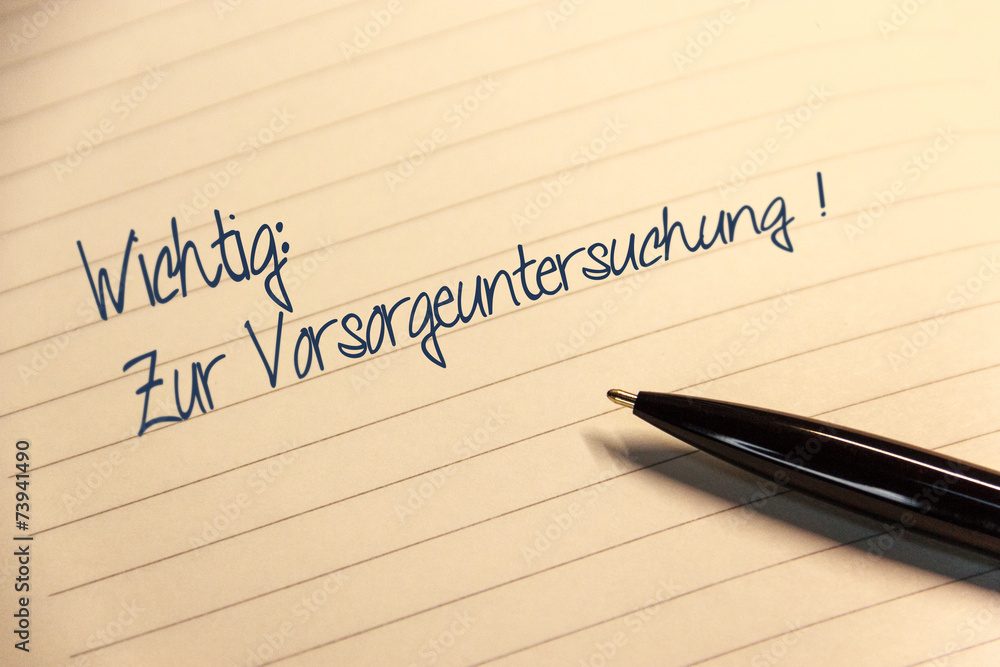 Wichtig:
Zur Vorsorgeuntersuchung !
Adobe Stock | #73941490